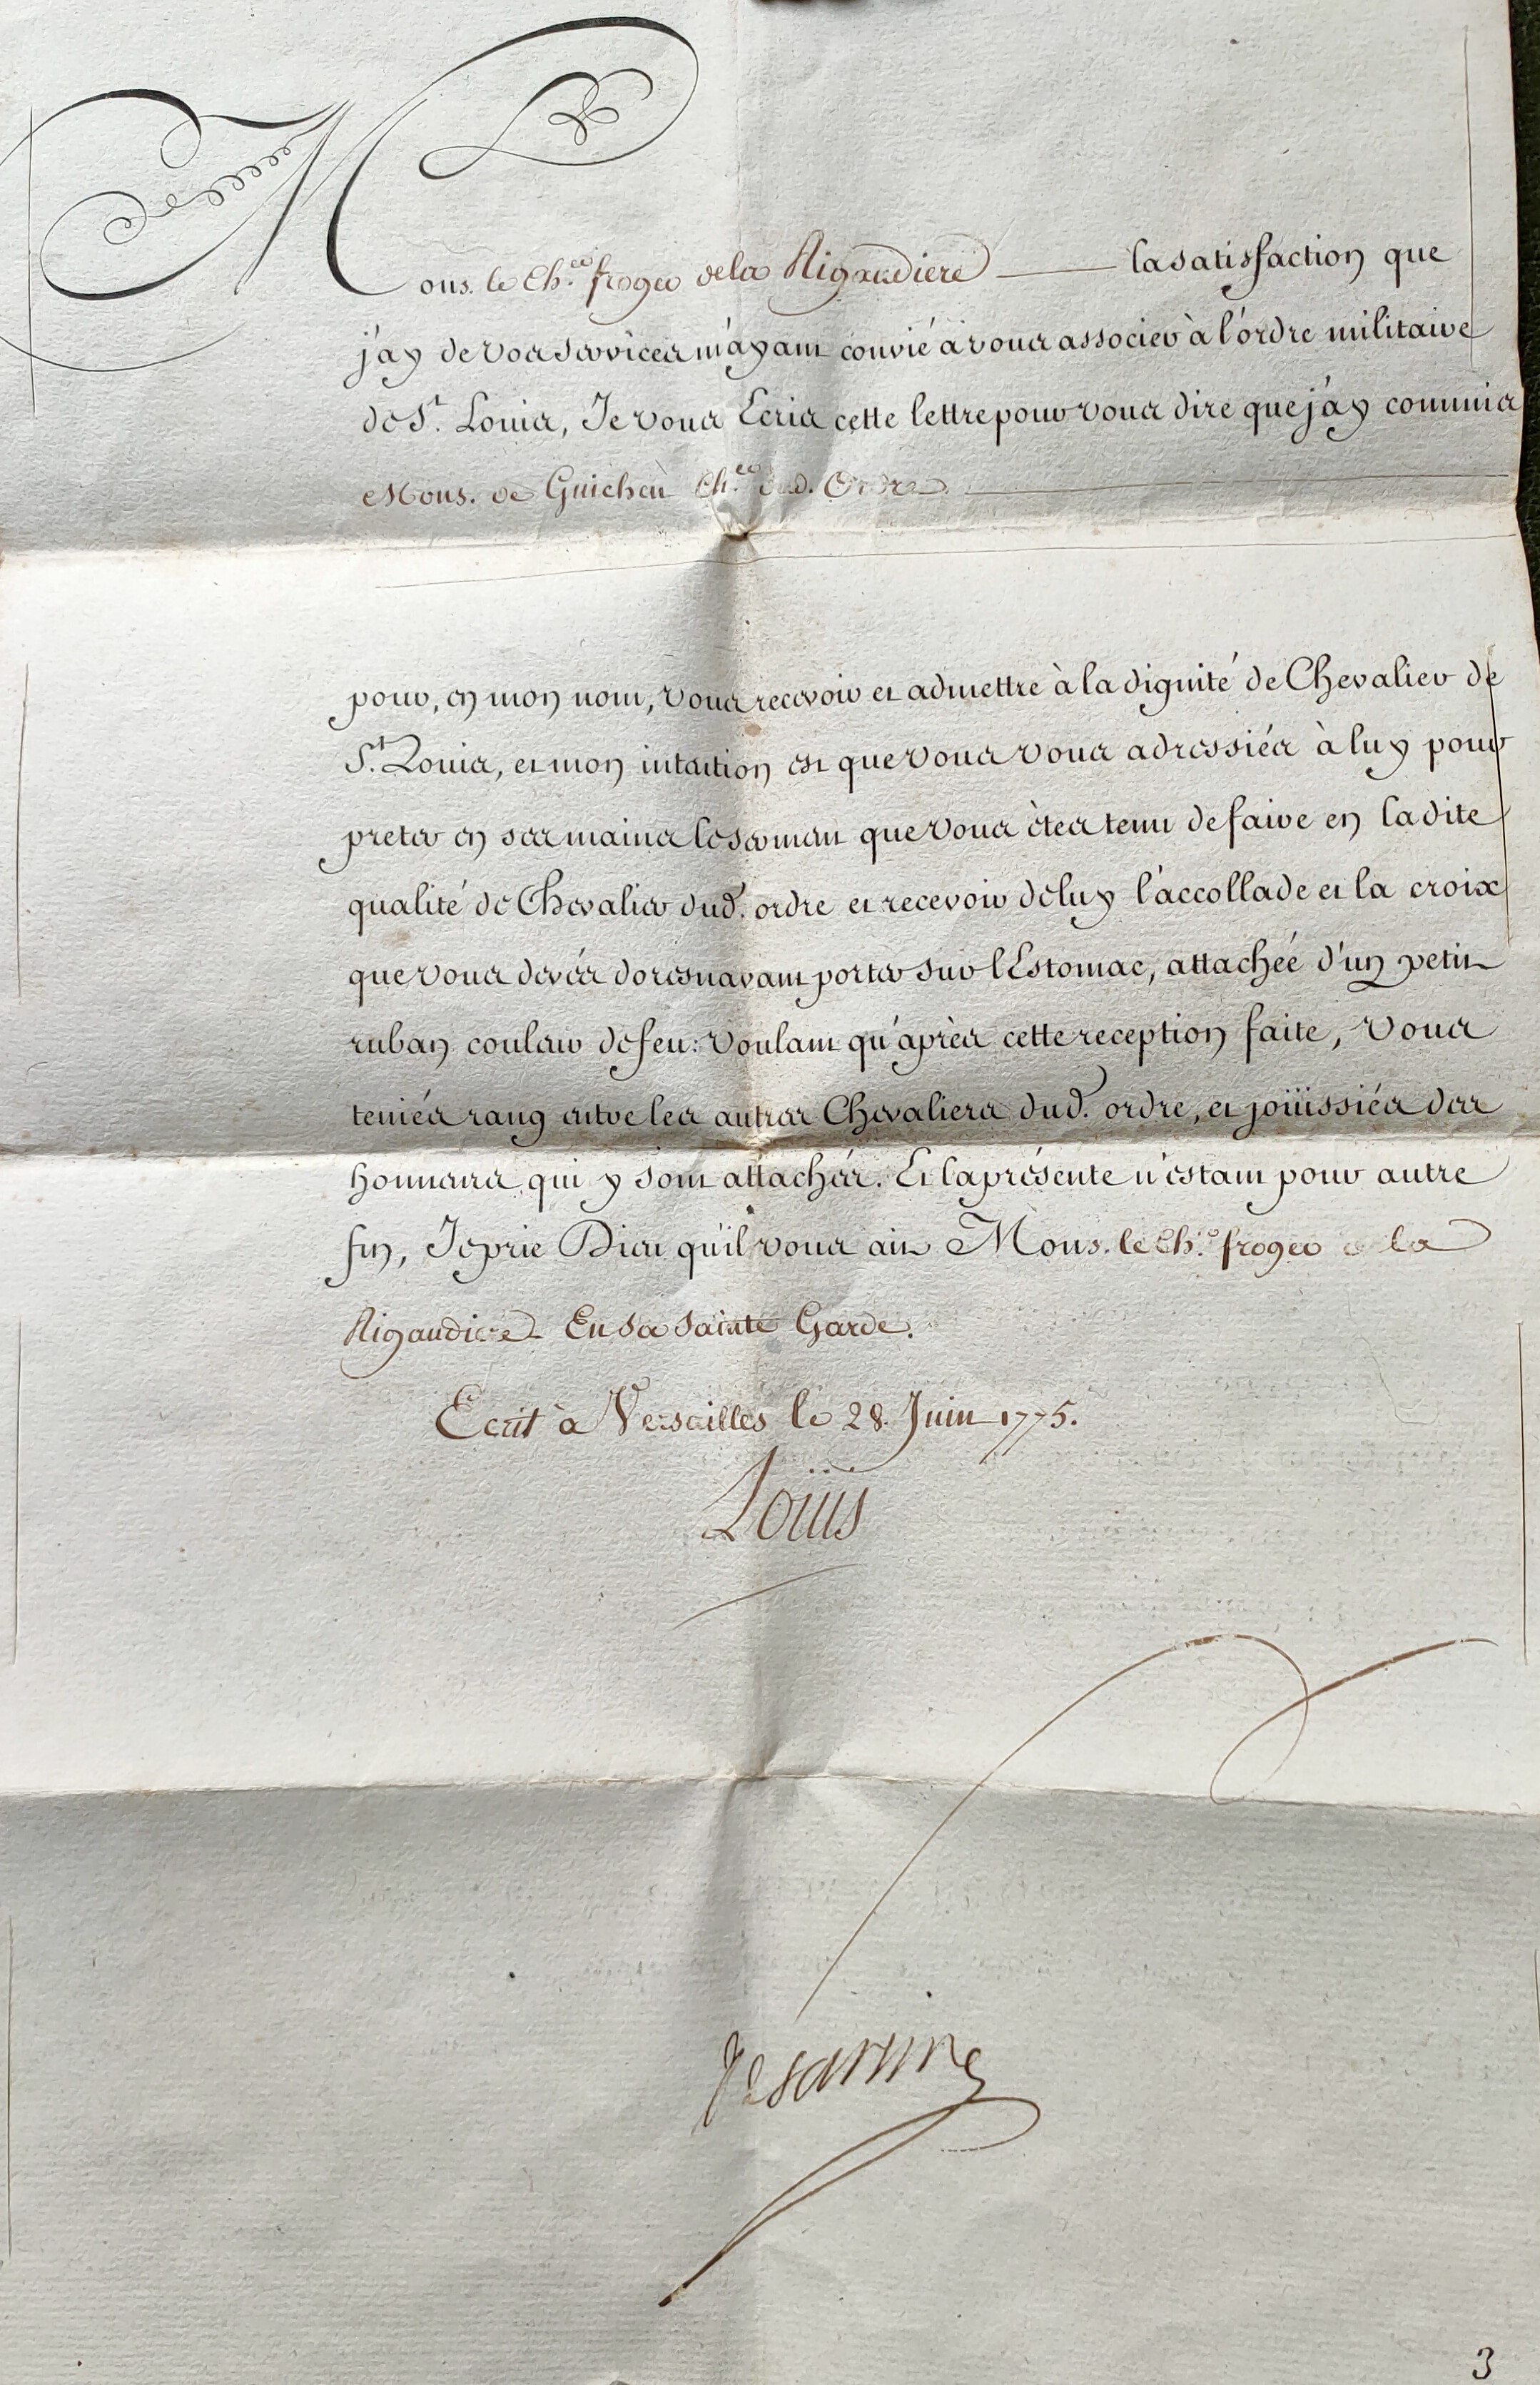 Mons. le Ch.er froger de la Rigaudiere la satisfaction que
j'ay de vos services m'ayant convié à vous associer à l'ordre militaire
de St. Louis, Je vous Ecris cette lettre pour vous dire que j'ay commis
Mons. de Guichen Ch.er dud. Ordre
pour, en mon nom, vous recevoir et admettre à la dignité de Chevalier de
St. Louis, et mon intention est que vous vous adressiés à luy pour
preter en ses mains le serment que vous êtes tenu de faire en ladite
qualité de Chevalier dud. ordre et recevoir de luy l'accollade et la croix
que vous devés doresnavant porter sur l'Estomac, attachée d'un petit
ruban couleur de feu: Voulant qu'après cette reception faite, vous
teniés rang entre les autres Chevaliers dud. ordre, et joüissiés des
honneurs qui y sont attachés. Et la présente n'estant pour autre
fin, Je prie Dieu qu'il vous ait Mons. le Ch.er froger de la
Rigaudiere En sa sainte Garde.
Ecrit à Versailles le 28. Juin 1775.
Loüis
De sartine
3